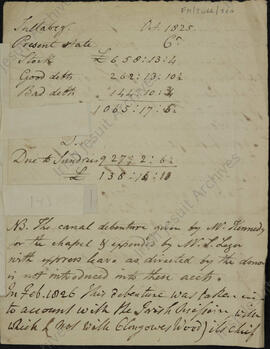 FM/TULL/120
Tullabeg Oct. 1825
Present state Cr.
Stock £658:13:4
Good debts 262:13:10½
Bad debts 144:10:3
1065:17:5½
Due to Sundries 927: 2:6½
£ 138:14:11
143
NB. The canal debenture given by Mr. Kennedy
for the chapel & expended by Mr. St. Leger
with express leave as directed by the donor
is not introduced into these accts.
In Feb. 1826 This debenture was taken in
to account with the Irish Mission, with
which (& not with Clongowes Wood) its chief
Irish Jesuit Archives